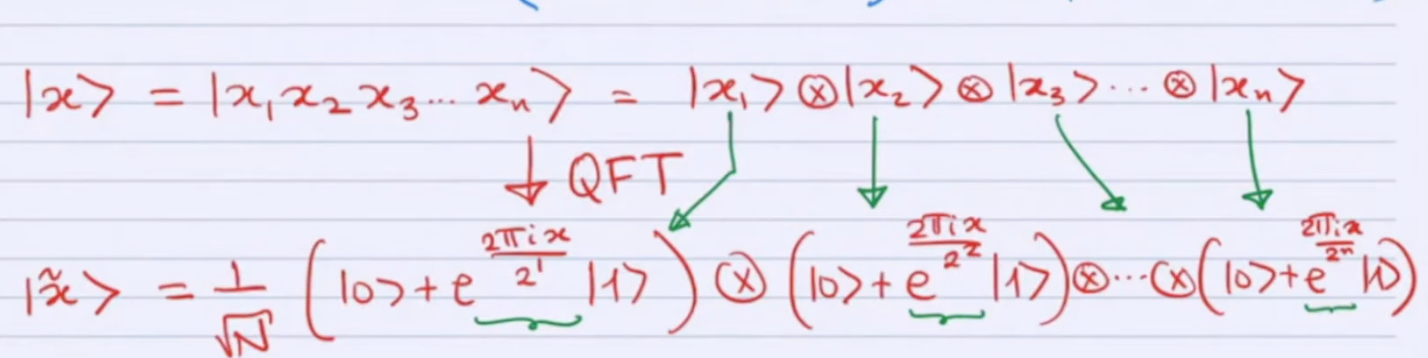 |x⟩ = |x₁ x₂ x₃ ... xₙ⟩ = |x₁⟩ ⊗ |x₂⟩ ⊗ |x₃⟩ ... ⊗ |xₙ⟩
QFT
|x̃⟩ = 1/√N (|0⟩ + e^(2πix/2¹) |1⟩) ⊗ (|0⟩ + e^(2πix/2²) |1⟩) ⊗ ... ⊗ (|0⟩ + e^(2πix/2ⁿ) |1⟩)